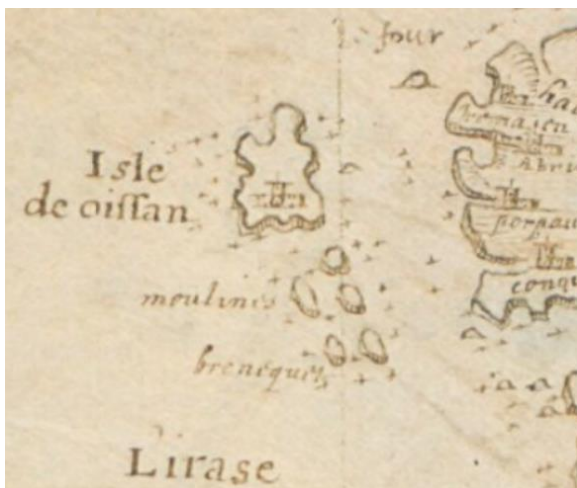 four
Isle
de oissan
moulines
brenequet
Lirase
porpau
conqu